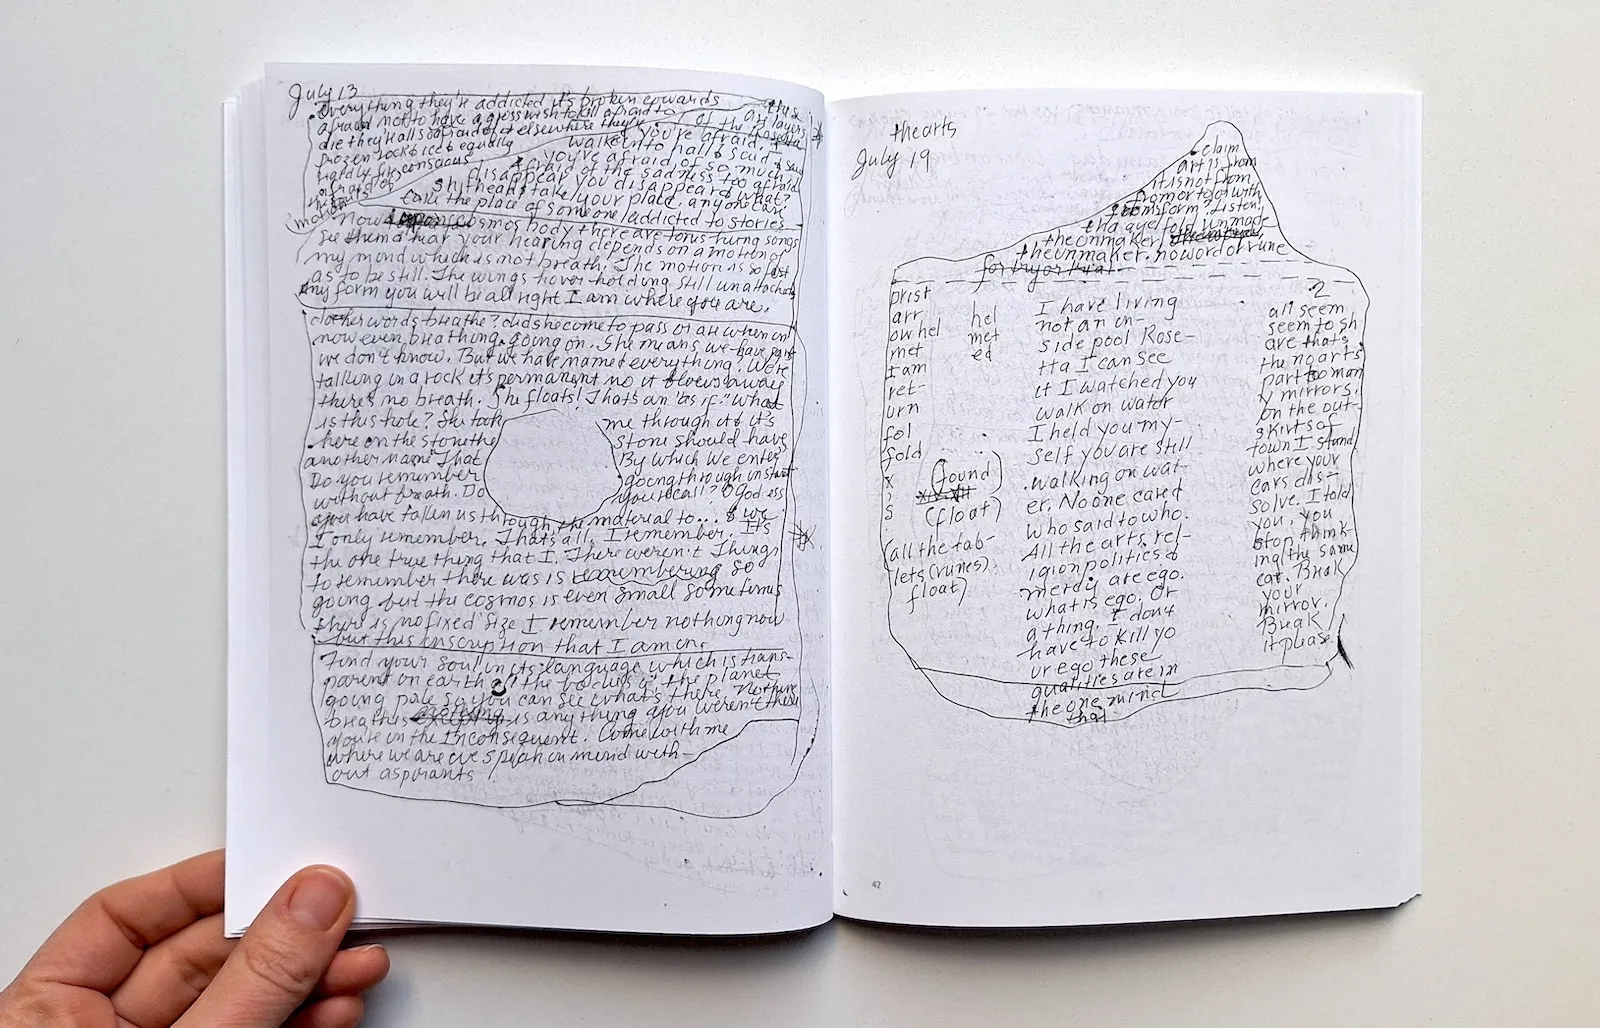 July 13
everything they're addicted it's broken cowards
afraid not to have a gross wish to kill afraid to
die they'll also afraid of it elsewhere they're of the
frozen rock & ice & equally walked into hall & said I
hardly it's conscious you're afraid of so much
afraid of disappears of the sadness too afraid
Shitheads take your place. anyone can
motion take the place of someone/addicted to stories
Now cosmos body there are torus-turing songs
See them or hear your hearing depends on a motion of
my mind which is not breath. The motion is so fast
as to be still. The wings hover holding still unattached
any form you will be all right I am where you are.
other words breathe? did she come to pass or are when in
now even, breathing, going on. She means we have
we don't know. But we have named everything. We're
talking in a rock it's permanent no it blows away
there's no breath. She floats! That's an "as if." What
is this hole? She took me through it & it's
here on the stone the stone should have
another name. That By which we enter
Do you remember going through
without breath. Do you recall? O goddess
you have fallen us through the material to... & we
I only remember. That's all. I remember. It's
the one true thing that I. There weren't things
to remember there was is remembering so
going but the cosmos is even small sometimes
there is no fixed size I remember nothing now
but this inscription that I am on.
Find your soul in its language which is trans-
parent on earth the focus is the planet
going pale so you can see what's there. Nothing
breath is is anything you weren't there
you're in the Inconsequent. Come with me
where we are eye speak on mind with-
out aspirants!
the arts
July 19
claim
art is from
it is not from
from or told with
from form. Listen,
the unmaker
the unmaker. no word or rune
for try or trial.
prist
arr
ow hel
met
I am
ret-
urn
fol
fold
x
?
s
hel
met
ed
(found)
(float)
(all the tab-
lets (runes)
float)
I have living
not an in-
side pool Rose-
tta I can see
it I watched you
walk on watr
I held you my-
self you are still
walking on wat-
er. No one cared
who said to who.
All the arts, rel-
igion politics &
merdy are ego.
what is ego. Or
a thing. I don't
have to kill yo
ur ego these
qualities are in
the one mind
that
2
all seem
seem to sh
are that's
the no arts
part too man
y mirrors.
on the out-
skirts of
town I stand
where your
ears dis-
solve. I told
you, you
stop think-
ing (the same
ear. Break
your
mirror.
Break
it please
42